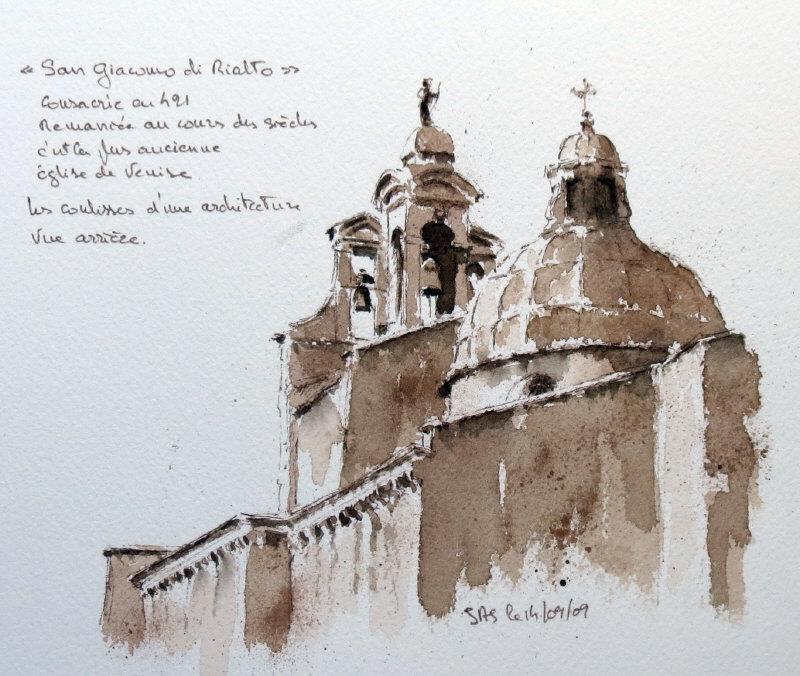 « San Giacomo di Rialto »
Consacrée en 421
Remaniée au cours des siècles
c'est la plus ancienne
église de Venise
Les coulisses d'une architecture
Vue arrière.
SAS le 14/09/09